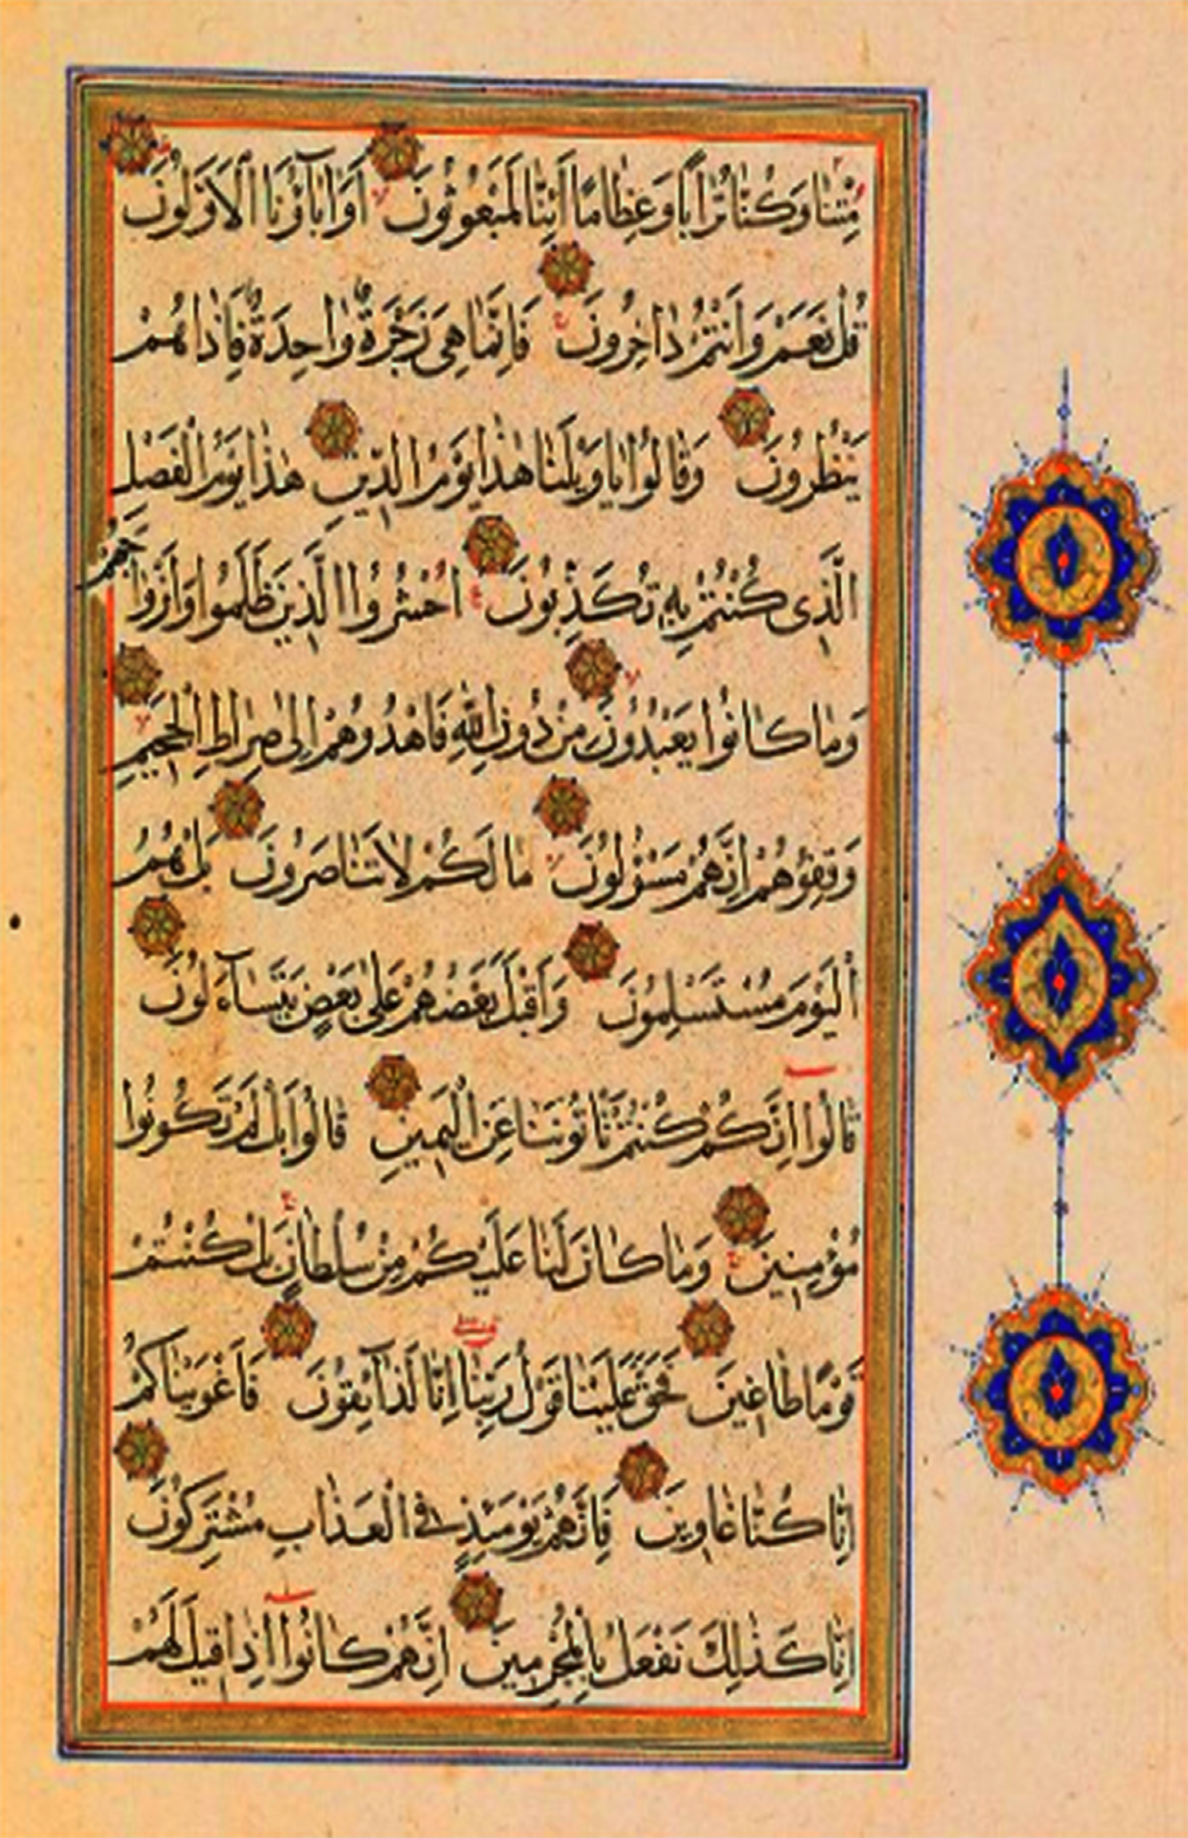 مِتْنَا وَكُنَّا تُرَابًا وَعِظَامًا أَئِنَّا لَمَبْعُوثُونَ أَوَآبَاؤُنَا الْأَوَّلُونَ
قُلْ نَعَمْ وَأَنْتُمْ دَاخِرُونَ فَإِنَّمَا هِيَ زَجْرَةٌ وَاحِدَةٌ فَإِذَا هُمْ
يَنْظُرُونَ وَقَالُوا يَا وَيْلَنَا هٰذَا يَوْمُ الدِّينِ هٰذَا يَوْمُ الْفَصْلِ
الَّذِي كُنْتُمْ بِهِ تُكَذِّبُونَ احْشُرُوا الَّذِينَ ظَلَمُوا وَأَزْوَاجَهُمْ
وَمَا كَانُوا يَعْبُدُونَ مِنْ دُونِ اللّٰهِ فَاهْدُوهُمْ إِلَىٰ صِرَاطِ الْجَحِيمِ
وَقِفُوهُمْ إِنَّهُمْ مَسْؤُلُونَ مَا لَكُمْ لَا تَنَاصَرُونَ بَلْ هُمُ
الْيَوْمَ مُسْتَسْلِمُونَ وَأَقْبَلَ بَعْضُهُمْ عَلَىٰ بَعْضٍ يَتَسَآءَلُونَ
قَالُوا إِنَّكُمْ كُنْتُمْ تَأْتُونَنَا عَنِ الْيَمِينِ قَالُوا بَلْ لَمْ تَكُونُوا
مُؤْمِنِينَ وَمَا كَانَ لَنَا عَلَيْكُمْ مِنْ سُلْطَانٍ بَلْ كُنْتُمْ
قَوْمًا طَاغِينَ فَحَقَّ عَلَيْنَا قَوْلُ رَبِّنَا إِنَّا لَذَآئِقُونَ فَأَغْوَيْنَاكُمْ
إِنَّا كُنَّا غَاوِينَ فَإِنَّهُمْ يَوْمَئِذٍ فِي الْعَذَابِ مُشْتَرِكُونَ
إِنَّا كَذٰلِكَ نَفْعَلُ بِالْمُجْرِمِينَ إِنَّهُمْ كَانُوا إِذَا قِيلَ لَهُمْ